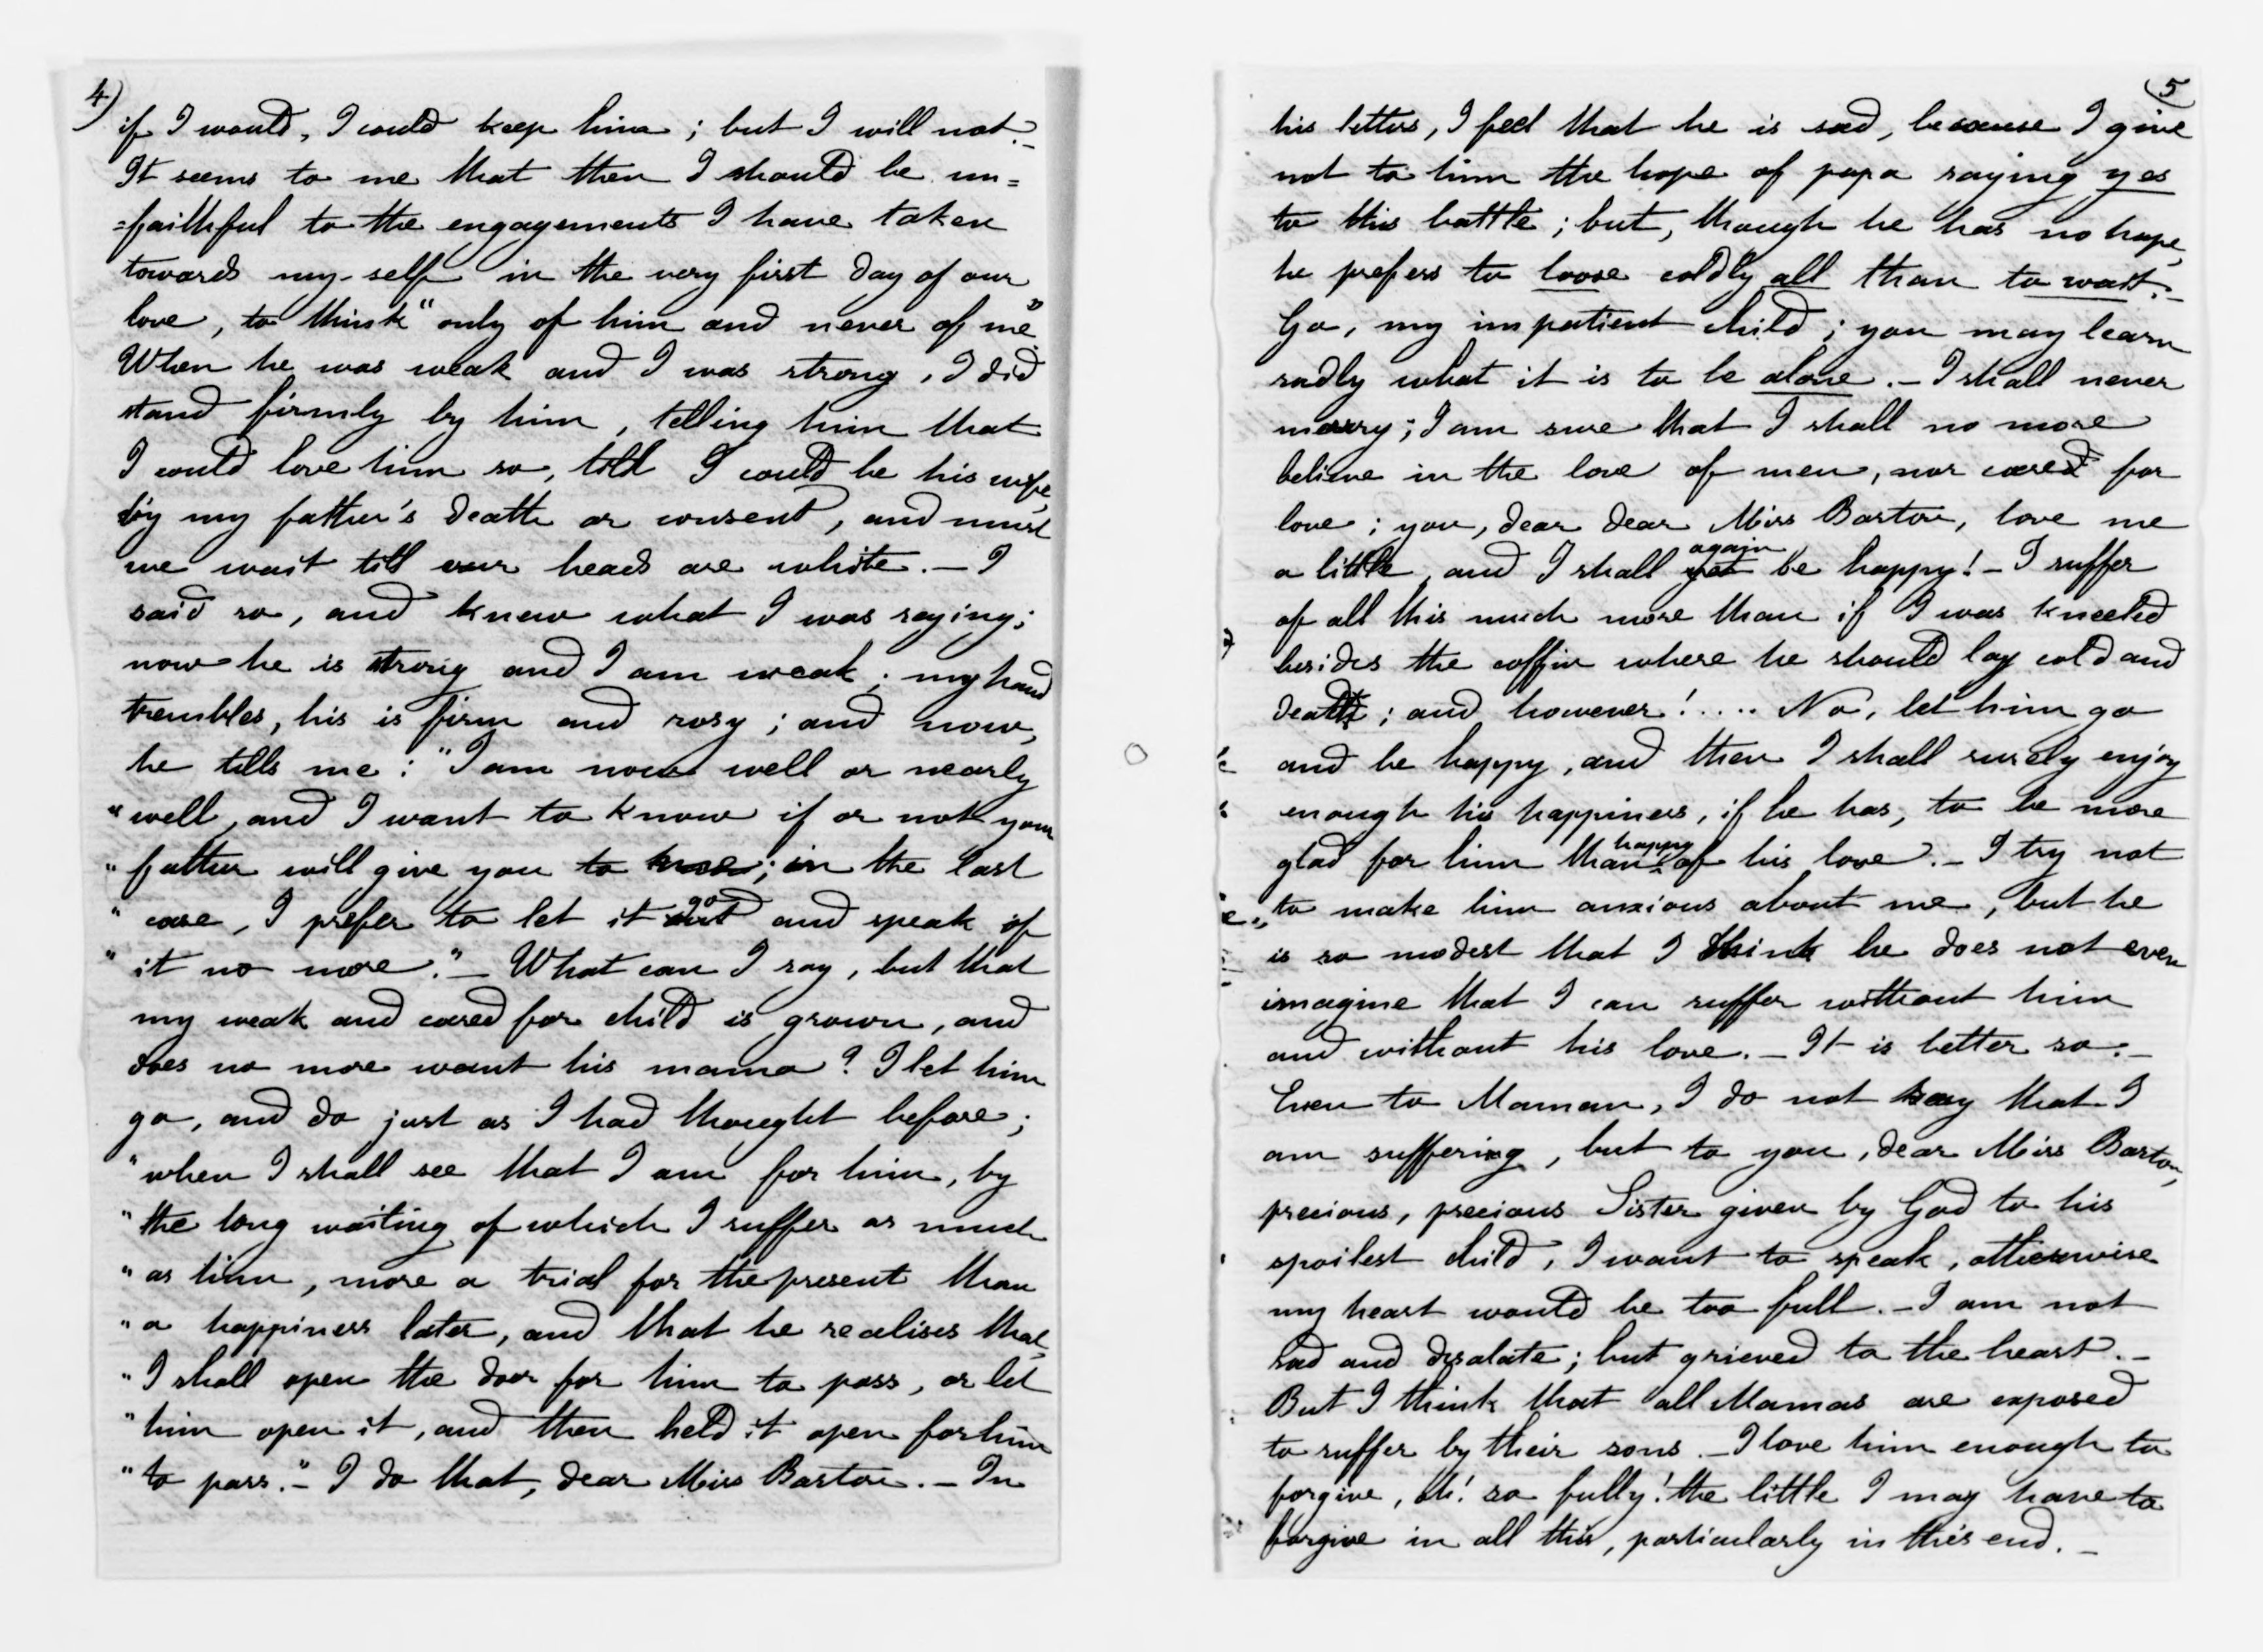 4)
if I would, I could keep him ; but I will not.-
It seems to me that then I should be un=
=faithful to the engagements I have taken
towards my-self in the very first day of our
love, to think "only of him and never of me".
When he was weak and I was strong, I did
stand firmly by him, telling him that
I would love him so, till I could be his wife,
by my father's death or consent, and must
we wait till our heads are white. - I
said so, and knew what I was saying;
now he is strong and I am weak ; my hand
trembles, his is firm and rosy ; and now,
he tells me : "I am now well or nearly
" well, and I want to know if or not your
" father will give you to me; in the last
" case, I prefer to let it go and speak of
" it no more." - What can I say, but that
my weak and cared for child is grown, and
does no more want his mama ? I let him
go, and do just as I had thought before ;
" when I shall see that I am for him, by
" the long waiting of which I suffer as much
" as him, more a trial for the present than
" a happiness later, and that he realises that,
" I shall open the door for him to pass, or let
" him open it, and then held it open for him
" to pass." - I do that, dear Miss Barton. - In
5
his letters, I feel that he is sad, because I give
not to him the hope of papa saying yes
to this battle ; but, though he has no hope,
he prefers to loose coldly all than to wait.-
Go, my impatient child ; you may learn
sadly what it is to be alone. - I shall never
marry ; I am sure that I shall no more
believe in the love of men, nor cared for
love ; you, dear dear Miss Barton, love me
a little, and I shall yet again be happy! - I suffer
of all this much more than if I was kneeled
besides the coffin where he should lay cold and
death ; and however ! .... No, let him go
and be happy, and then I shall surely enjoy
enough his happiness, if he has, to be more
glad for him than happy of his love. - I try not
to make him anxious about me, but he
is so modest that I think he does not even
imagine that I can suffer without him
and without his love. - It is better so. -
Even to Maman, I do not say that I
am suffering, but to you, dear Miss Barton,
precious, precious Sister given by God to his
spoilest child, I want to speak, otherwise
my heart would be too full. - I am not
sad and desolate ; but grieved to the heart. -
But I think that all Mamas are exposed
to suffer by their sons. - I love him enough to
forgive, oh! so fully! the little I may have to
forgive in all this, particularly in this end. -